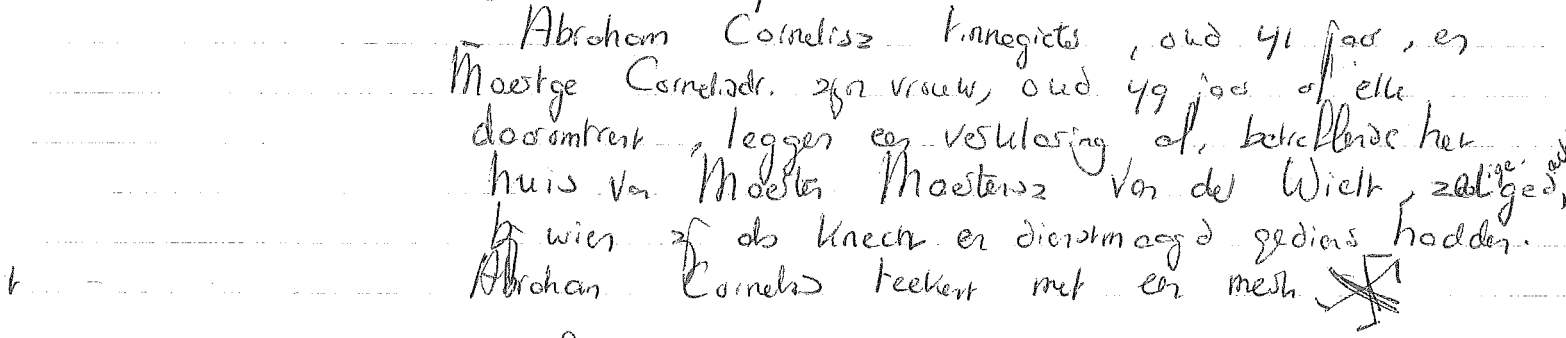 Abraham Cornelisz Tinnegieter, oud 41 jaar, en
Maertge Cornelisdr. zijn vrouw, oud 49 jaar of elk
daaromtrent, leggen een verklaring af, betreffende het
huis van Maerten Maertensz van der Wielt, zaliger
bij wien zij als knecht en dienstmaagd gediend hadden.
Abraham Cornelisz teekent met een merk